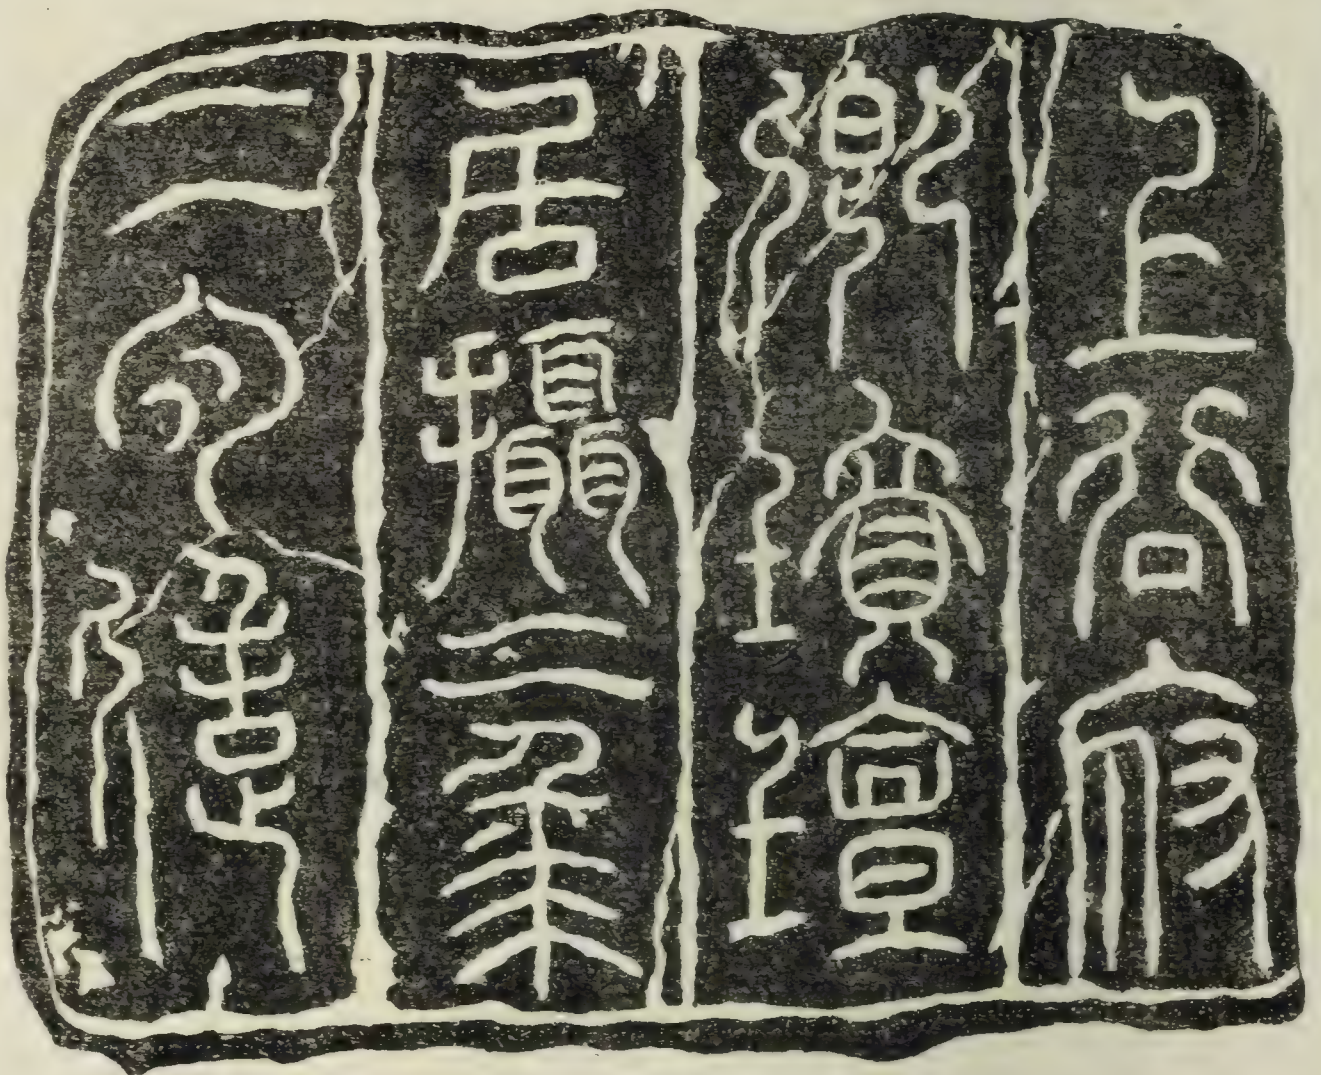 上谷府
卿墳壇
居攝二年
二月造